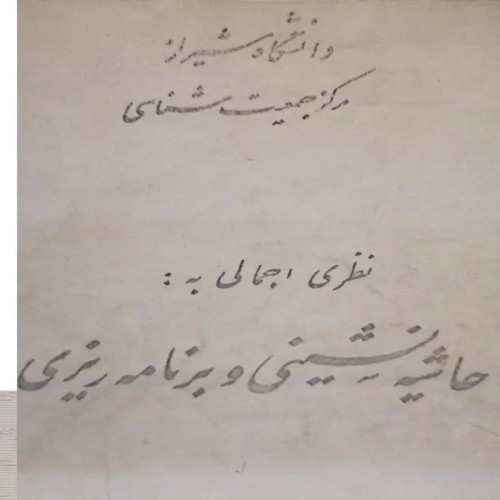 دانشگاه شیراز
مرکز جمعیت شناسی
نظری اجمالی به :
حاشیه نشینی و برنامه ریزی